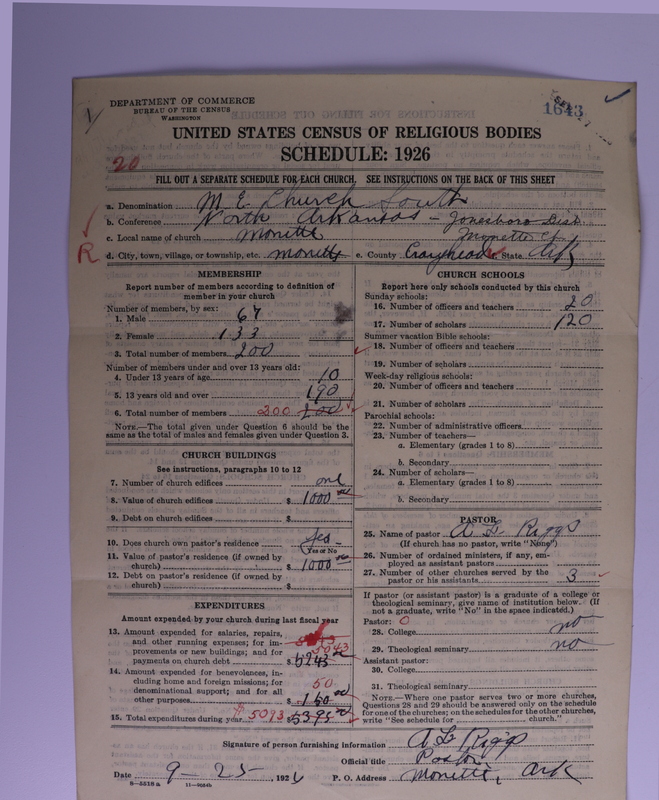 DEPARTMENT OF COMMERCE
BUREAU OF THE CENSUS
WASHINGTON
1643
UNITED STATES CENSUS OF RELIGIOUS BODIES
SCHEDULE: 1926
20
FILL OUT A SEPARATE SCHEDULE FOR EACH CHURCH. SEE INSTRUCTIONS ON THE BACK OF THIS SHEET
a. Denomination M E Church South
b. Conference North Arkansas - Jonesboro Dist.
c. Local name of church Monette Monette Ct.
R
d. City, town, village, or township, etc. Monette e. County Craighead State Ark
MEMBERSHIP
Report number of members according to definition of
member in your church
Number of members, by sex:
1. Male 67
2. Female 133
3. Total number of members 200
Number of members under and over 13 years old:
4. Under 13 years of age 10
5. 13 years old and over 190
6. Total number of members 200
NOTE.—The total given under Question 6 should be the
same as the total of males and females given under Question 3.
CHURCH BUILDINGS
See instructions, paragraphs 10 to 12
7. Number of church edifices one
8. Value of church edifices $ 1000
9. Debt on church edifices $
10. Does church own pastor's residence? Yes
Yes or No
11. Value of pastor's residence (if owned by
church) $ 1000
12. Debt on pastor's residence (if owned by
church) $
EXPENDITURES
Amount expended by your church during last fiscal year
13. Amount expended for salaries, repairs,
and other running expenses; for im-
provements or new buildings; and for 5043
payments on church debt $ 5243
14. Amount expended for benevolences, in-
cluding home and foreign missions; for
denominational support; and for all 50
other purposes $ 150
15. Total expenditures during year $ 5093 $ 5393
CHURCH SCHOOLS
Report here only schools conducted by this church
Sunday schools:
16. Number of officers and teachers 20
17. Number of scholars 120
Summer vacation Bible schools:
18. Number of officers and teachers
19. Number of scholars
Week-day religious schools:
20. Number of officers and teachers
21. Number of scholars
Parochial schools:
22. Number of administrative officers
23. Number of teachers—
a. Elementary (grades 1 to 8)
b. Secondary
24. Number of scholars—
a. Elementary (grades 1 to 8)
b. Secondary
PASTOR
25. Name of pastor A L Riggs
(If church has no pastor, write "None")
26. Number of ordained ministers, if any, em-
ployed as assistant pastors
27. Number of other churches served by the
pastor or his assistants 3
If pastor (or assistant pastor) is a graduate of a college or
theological seminary, give name of institution below. (If
not a graduate, write "No" in the space indicated.)
Pastor: 0
28. College no
29. Theological seminary no
Assistant pastor:
30. College
31. Theological seminary
NOTE.—Where one pastor serves two or more churches,
Questions 28 and 29 should be answered only on the schedule
for one of the churches; on the schedules for the other churches,
write "See schedule for church."
Signature of person furnishing information A L Riggs
Official title Pastor
Date 9-25-, 1926 P. O. Address Monette, Ark